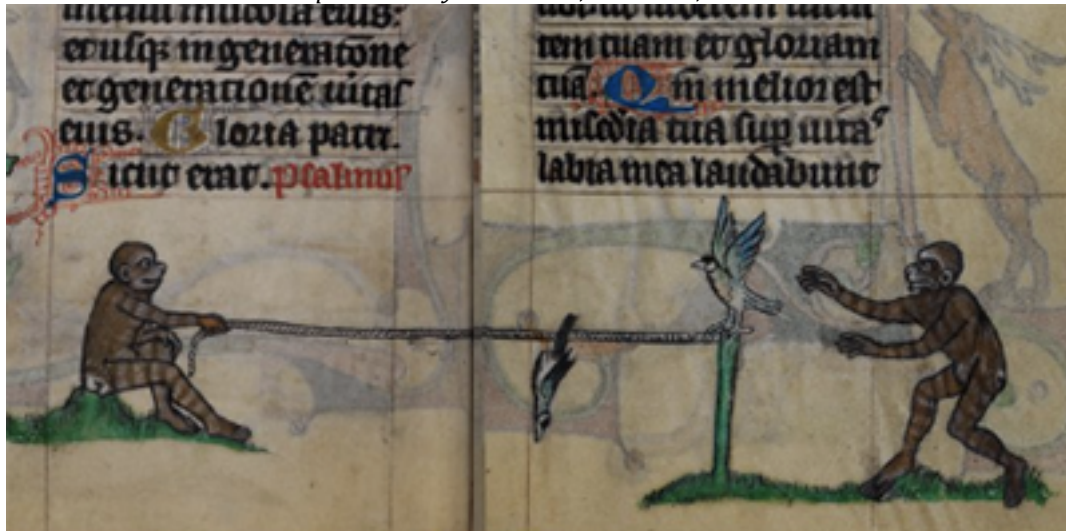 et usq̃ in generatõne
et generationẽ uitas
eius. Gloria patri.
Sicut erat. psalmus
tem tuam et gloriam
tuã. Qm̃ melior est
mĩscdia tua sup̱ uitas
labia mea laudabunt